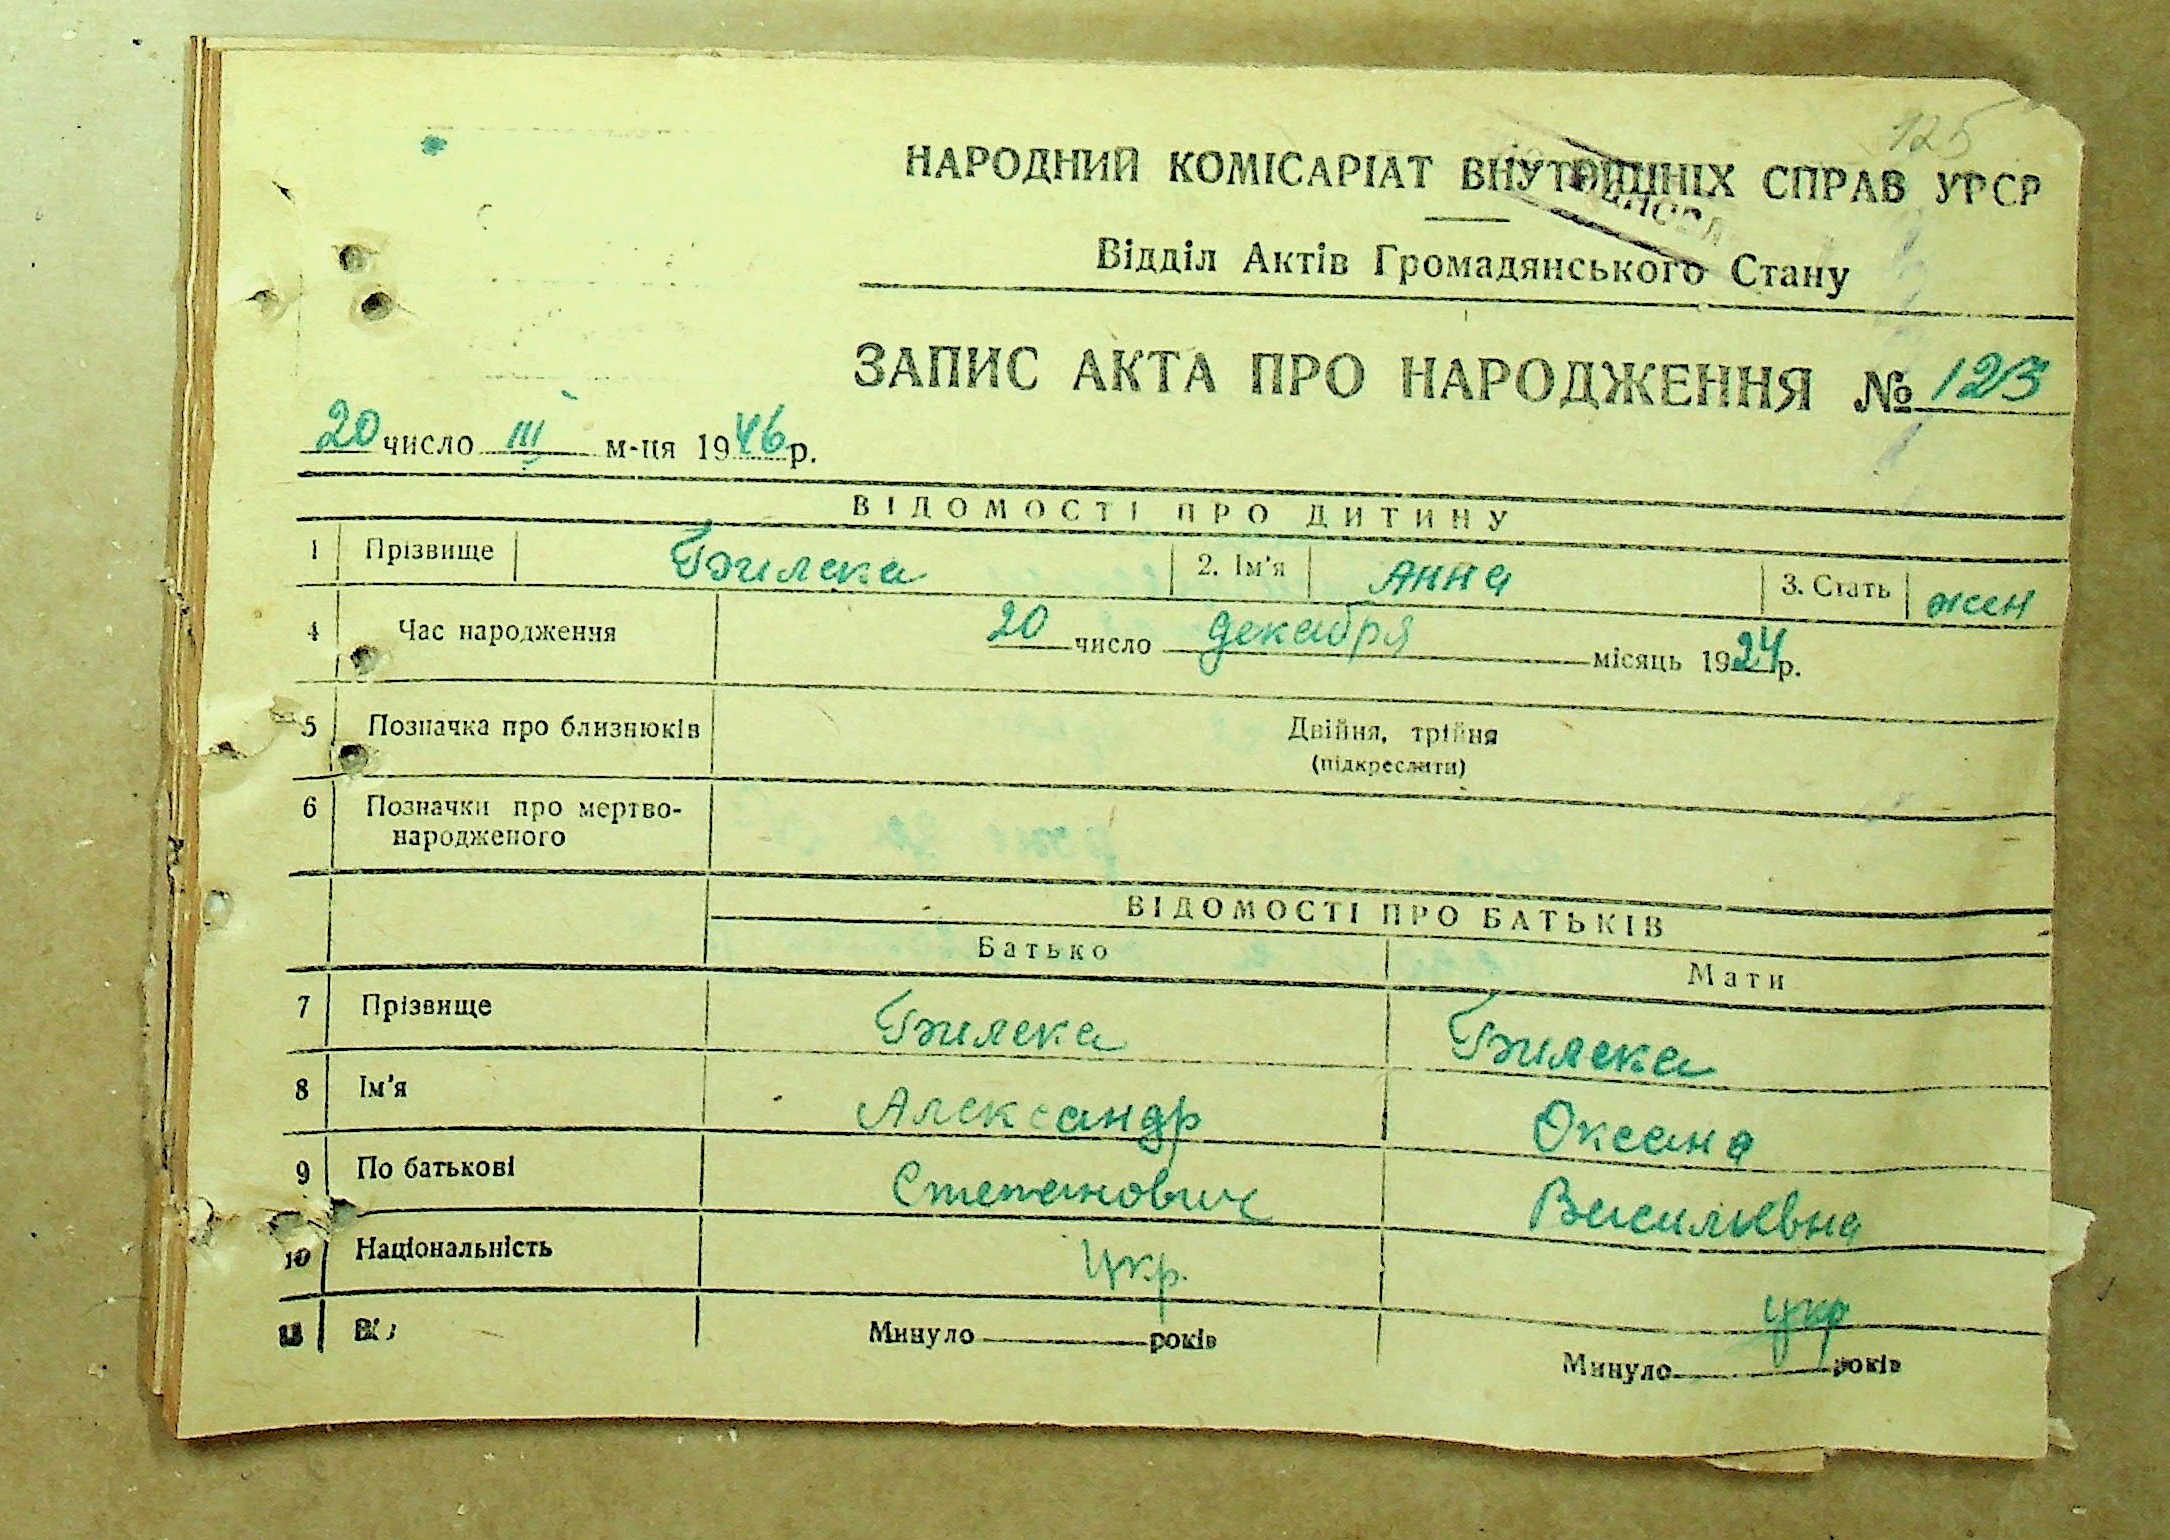 125
НАРОДНИЙ КОМІСАРІАТ ВНУТРІШНІХ СПРАВ УРСР
Відділ Актів Громадянського Стану
ЗАПИС АКТА ПРО НАРОДЖЕННЯ № 123
20 число III м-ця 1946 р.
ВІДОМОСТІ ПРО ДИТИНУ
1 Прізвище Бжилека 2. Ім'я Анна 3. Стать жен
4 Час народження 20 число декабря місяць 1924 р.
5 Позначка про близнюків Двійня, трійня
(підкреслити)
6 Позначки про мертво-
народженого
ВІДОМОСТІ ПРО БАТЬКІВ
Батько Мати
7 Прізвище Бжилека Бжилека
8 Ім'я Александр Оксана
9 По батькові Степанович Васильевна
10 Національність Укр. укр
Минуло років Минуло років